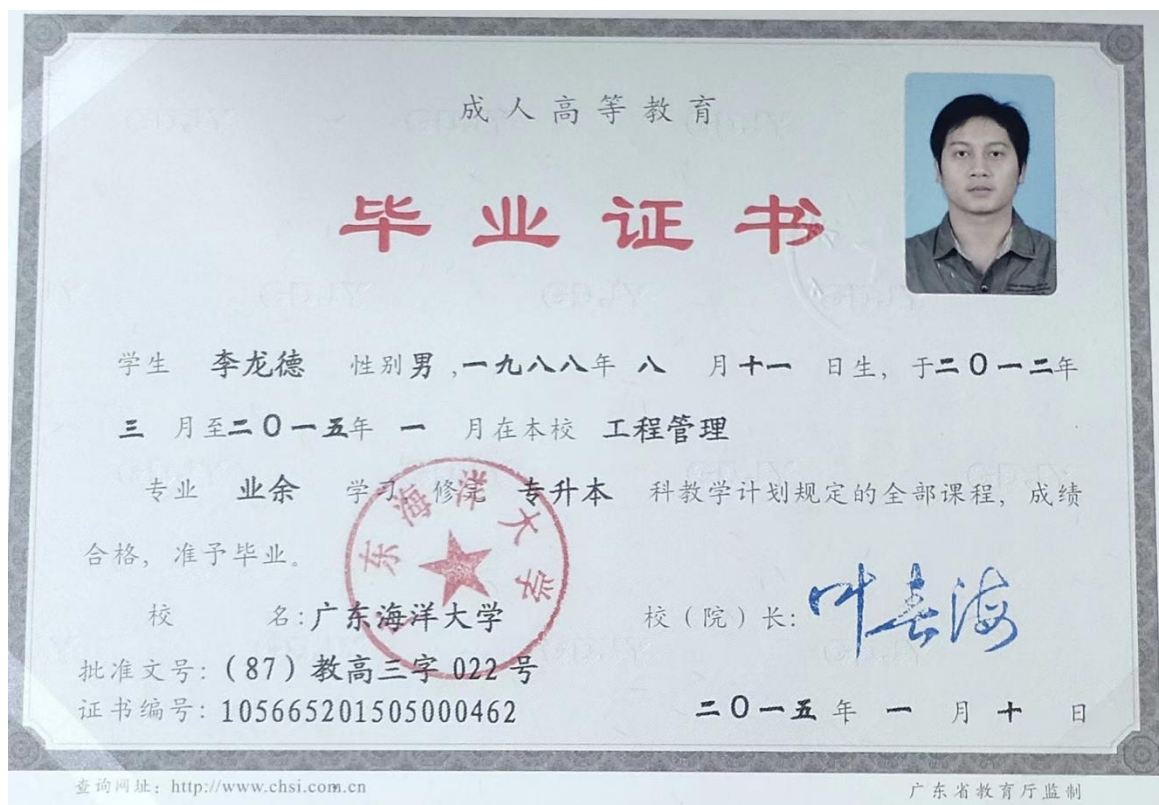 成人高等教育
毕业证书
学生 李龙德 性别男,一九八八年 八 月十一 日生，于二〇一二年
三 月至二〇一五年 一 月在本校 工程管理
专业 业余 学习 修完 专升本 科教学计划规定的全部课程，成绩
合格，准予毕业。
校 名:广东海洋大学
校（院）长: 叶春海
批准文号:(87)教高三字 022 号
证书编号:105665201505000462
二〇一五 年 一 月 十 日
东海洋大学
查询网址：http://www.chsi.com.cn
广东省教育厅监制